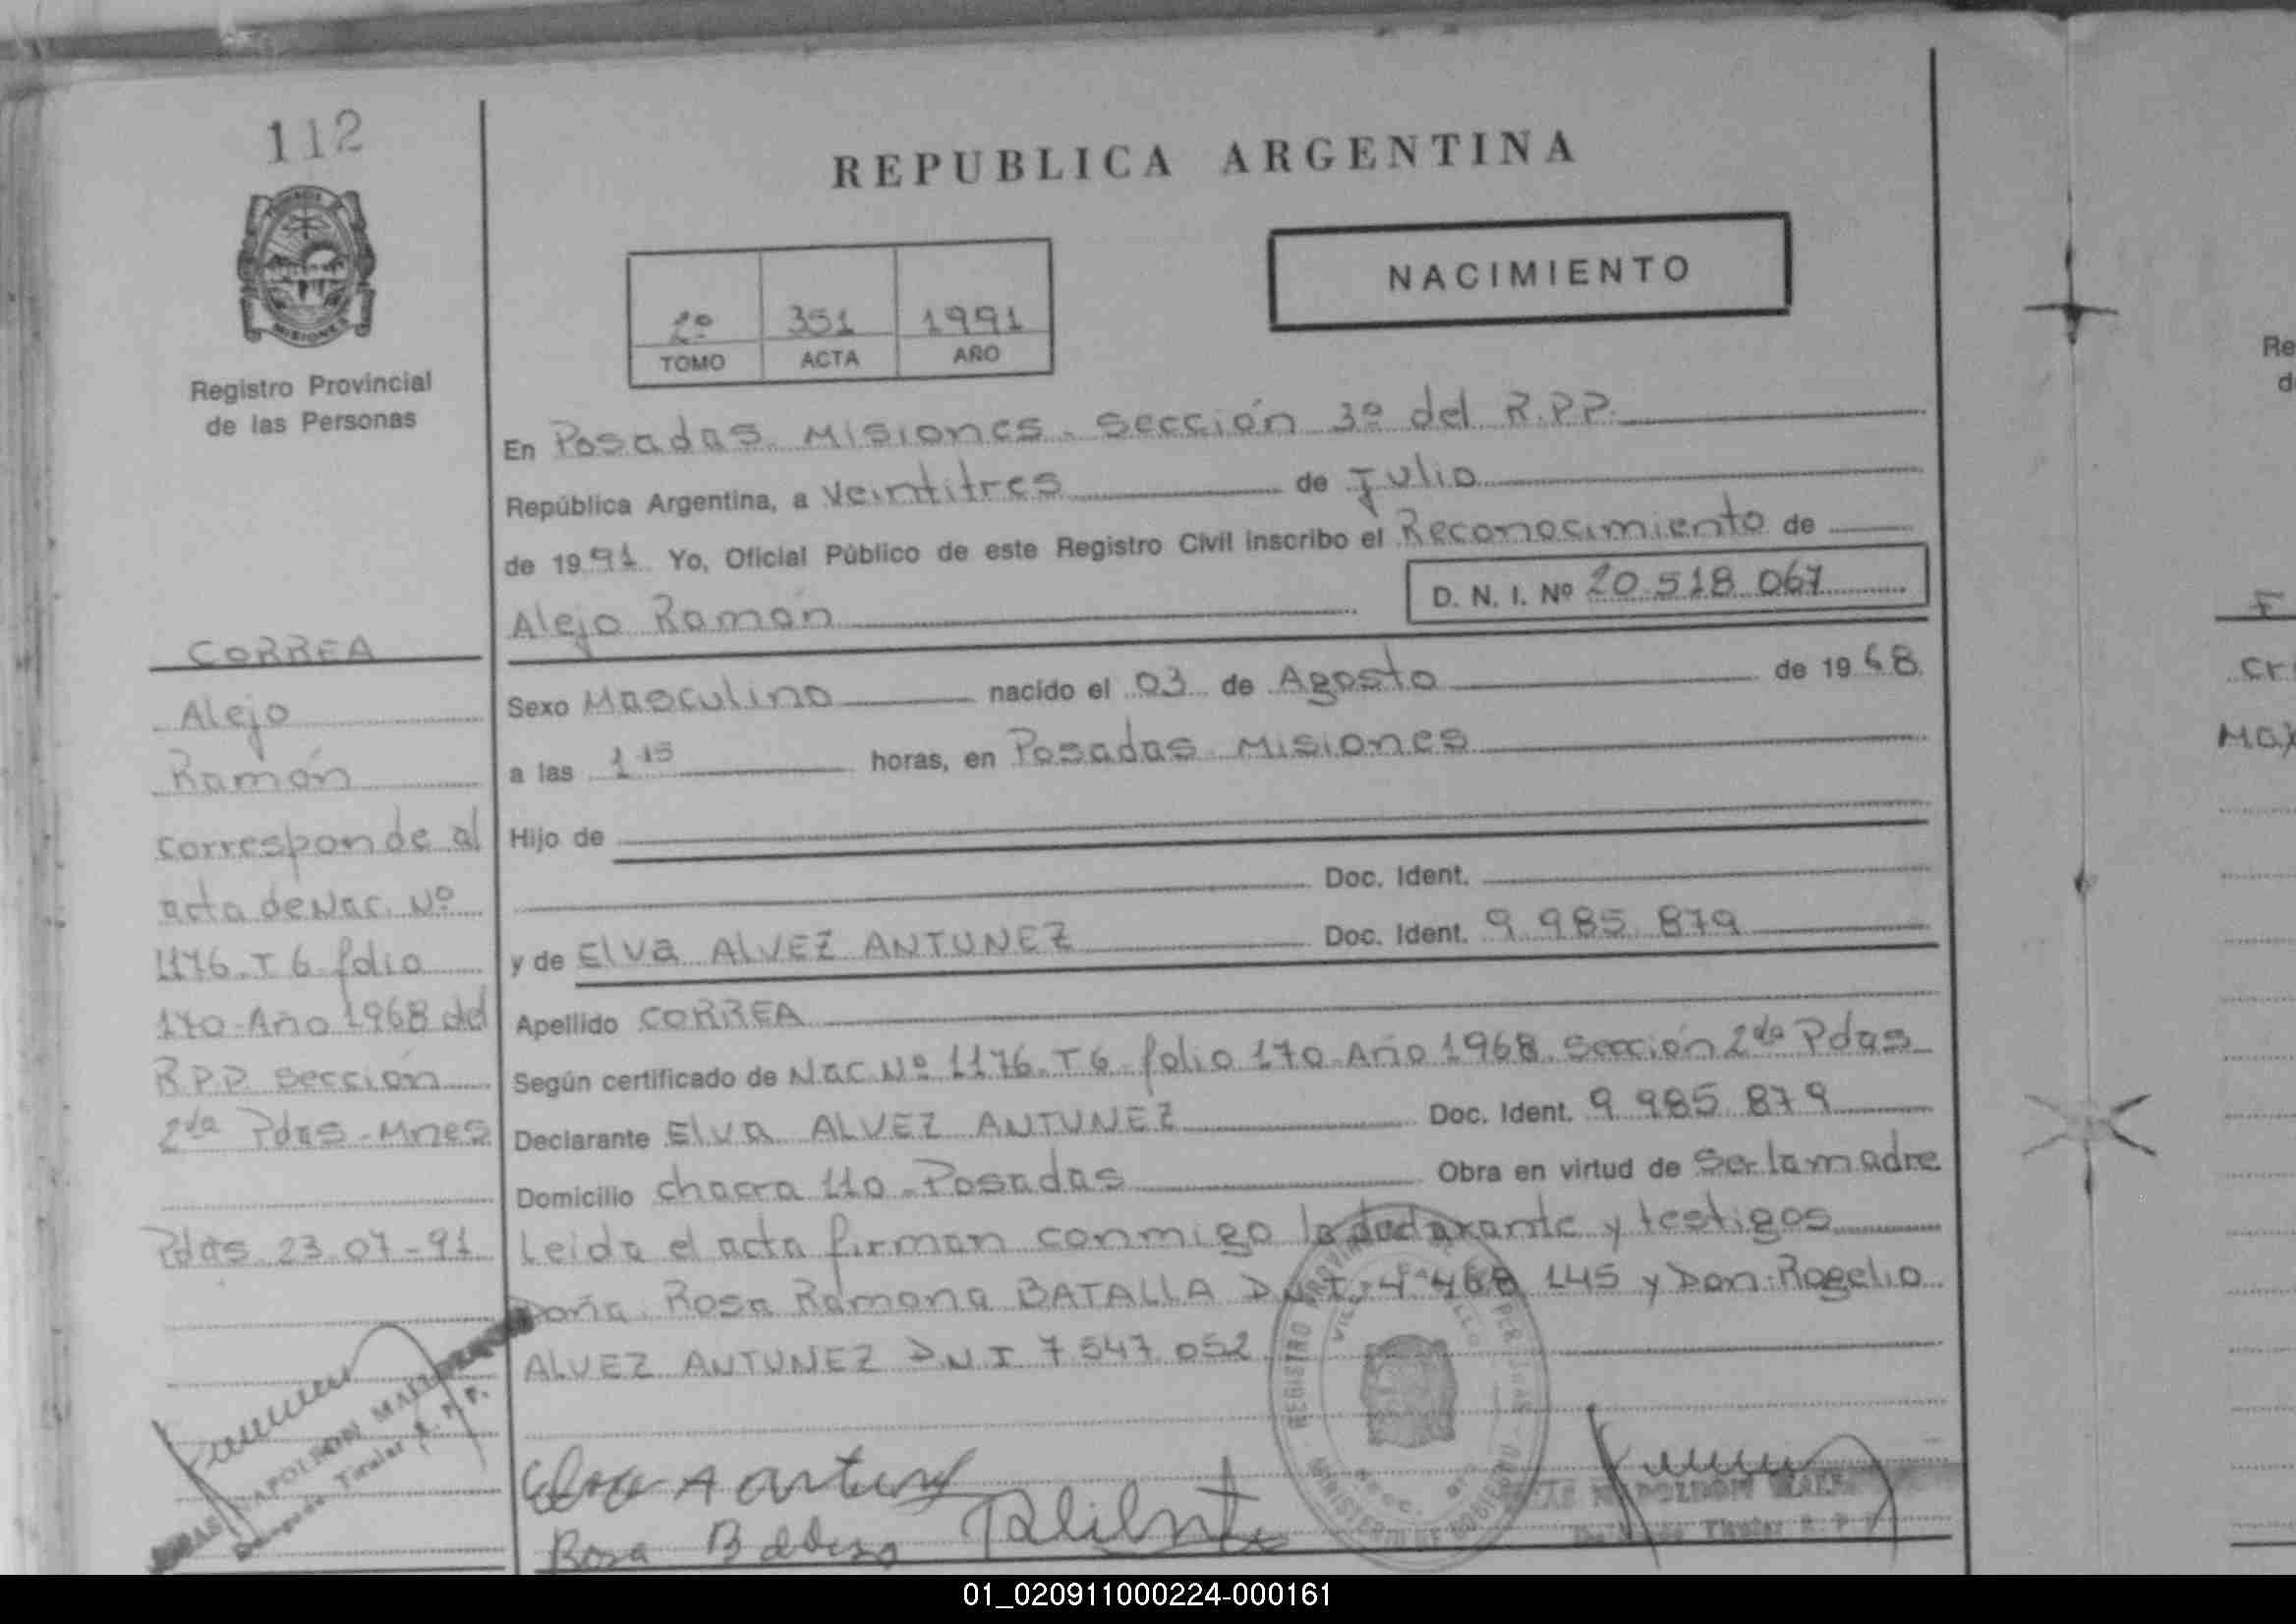 112
MISIONES
Registro Provincial
de las Personas
CORREA
Alejo
Ramón
corresponde al
acta de Nac. Nº
1176 T 6 folio
170 - Año 1968 del
R.P.P. Sección
2da Pdas - Mnes
Pdas 23-07-91
NAPOLEON
Titular R. P. P.
REPUBLICA ARGENTINA
NACIMIENTO
2º 351 1991
TOMO ACTA AÑO
En Posadas Misiones - Sección 3º del R.P.P.
República Argentina, a Veintitres de Julio
de 1991 Yo, Oficial Público de este Registro Civil inscribo el Reconocimiento de
Alejo Ramón D. N. I. Nº 20.518.067
Sexo Masculino nacido el 03 de Agosto de 1968
a las 1 15 horas, en Posadas Misiones
Hijo de
Doc. Ident.
y de Elva ALVEZ ANTUNEZ Doc. Ident. 9.985.879
Apellido CORREA
Según certificado de Nac. Nº 1176 T 6 - folio 170 - Año 1968 Sección 2da Pdas
Declarante Elva ALVEZ ANTUNEZ Doc. Ident. 9.985.879
Domicilio chacra 110 - Posadas Obra en virtud de Ser la madre
Leida el acta firman conmigo la declarante y testigos
Doña Rosa Ramona BATALLA D.N.I. 4.468.145 y Don Rogelio
ALVEZ ANTUNEZ D.N.I 7.547.052
REGISTRO PROVINCIAL
MINISTERIO DE GOBIERNO
Rosa
NAPOLEON
Titular R. P. P.
01_020911000224-000161